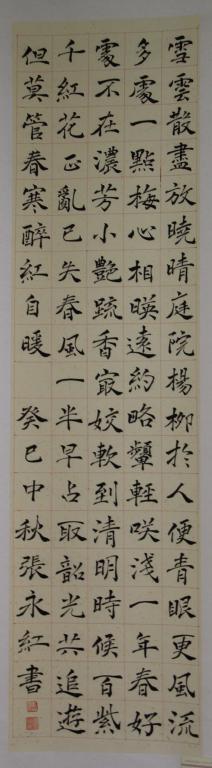 雪雲散盡放曉晴庭院楊柳於人便青眼更風流
多處一點梅心相暎遠約略顰輕咲淺一年春好
處不在濃芳小艷疏香㝡姣軟到清明時候百紫
千紅花正亂已失春風一半早占取韶光共追遊
但莫管春寒醉紅自暖 癸巳中秋張永紅書